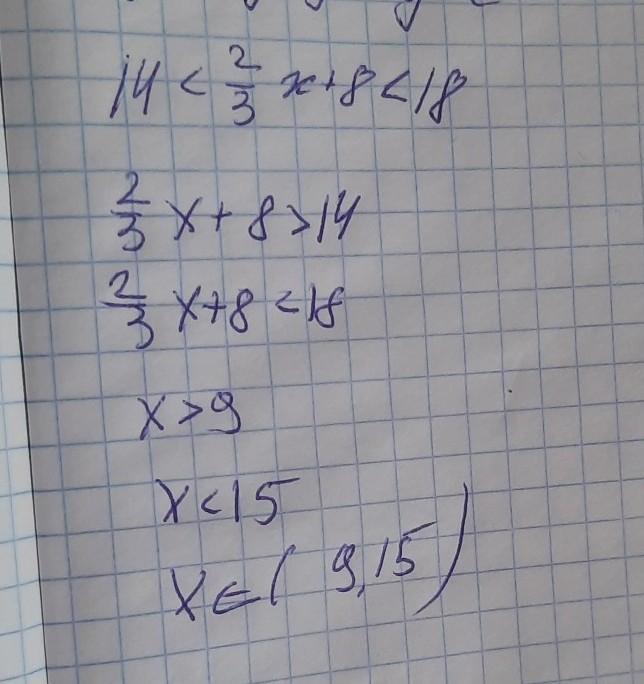 14 < 2/3 x+8 < 18
2/3 x + 8 > 14
2/3 x+8 < 18
x > 9
x < 15
x ∈ ( 9,15)